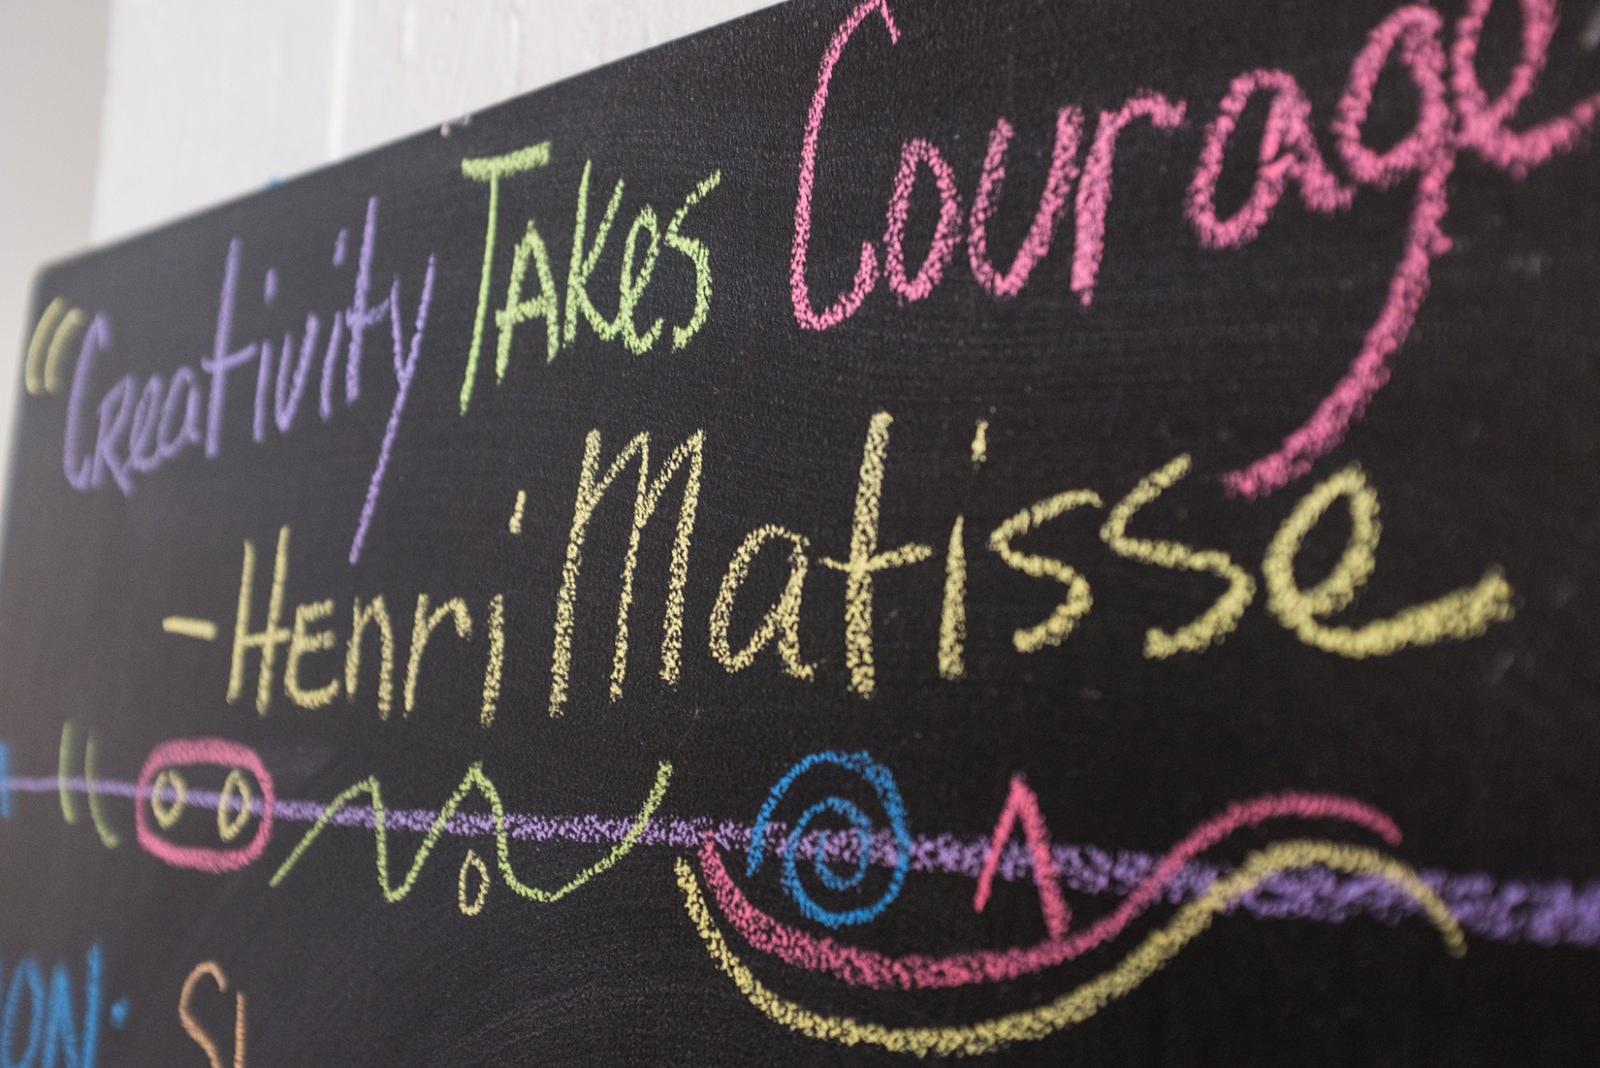 “Creativity Takes Courage
-Henri Matisse